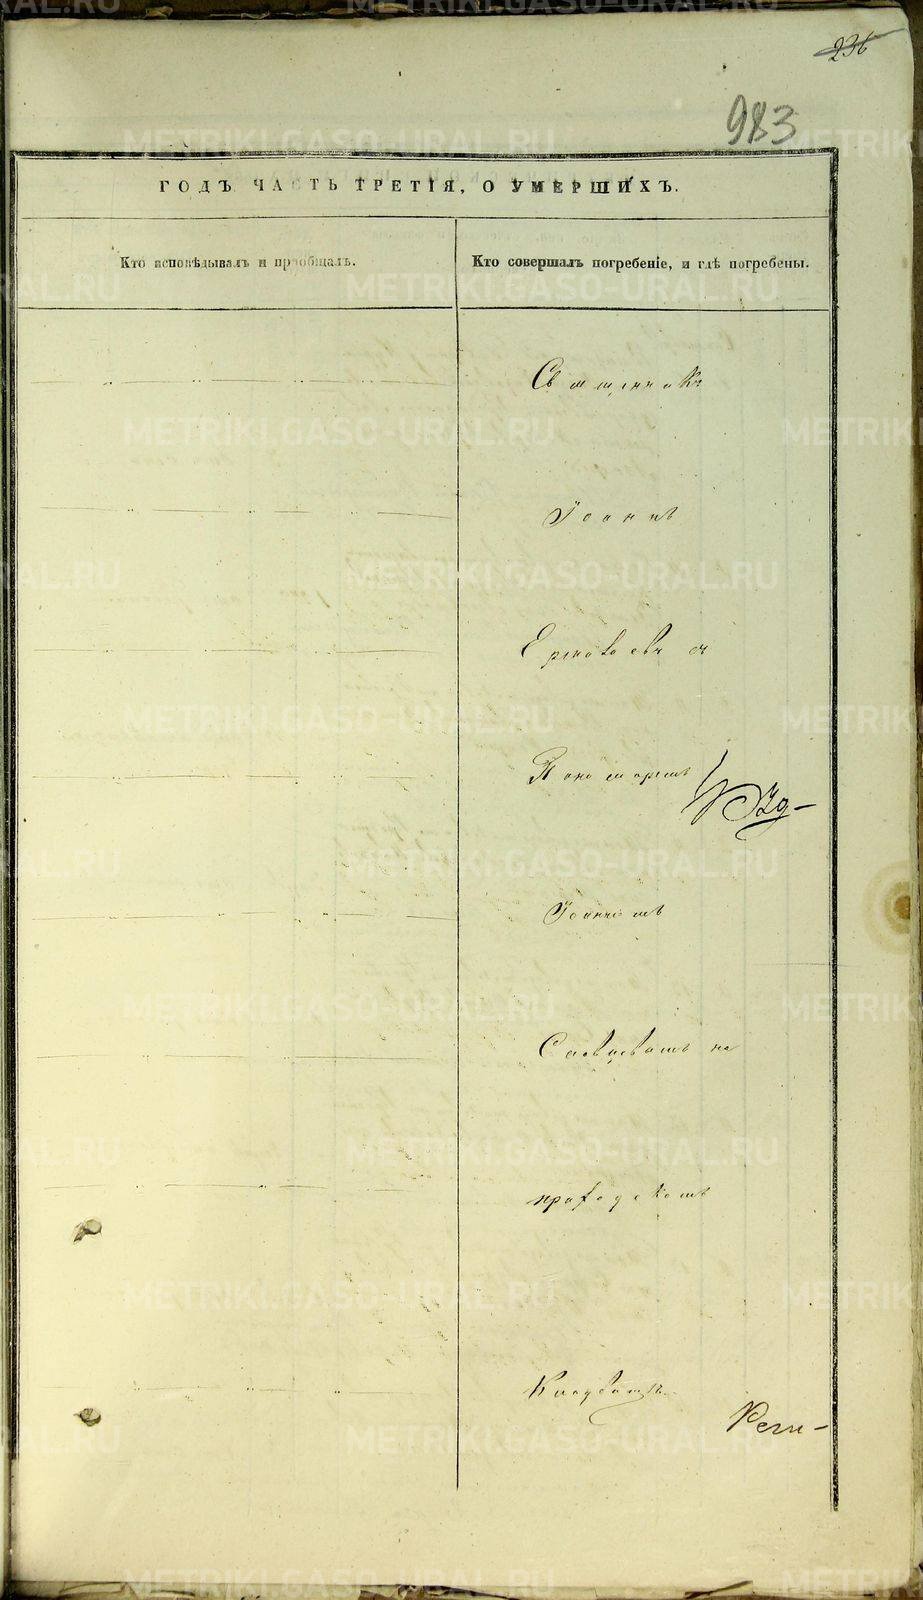 236
983
ГОДЪ ЧАСТЬ ТРЕТІЯ, О УМЕРШИХЪ.
Кто исповѣдывалъ и пріобщалъ.
Кто совершалъ погребеніе, и гдѣ погребены.
Священникъ
Іоаннъ
съ
Пономаремъ
Іоанномъ
на
приходскомъ
Кладбищѣ
METRIKI.GASO-URAL.RU